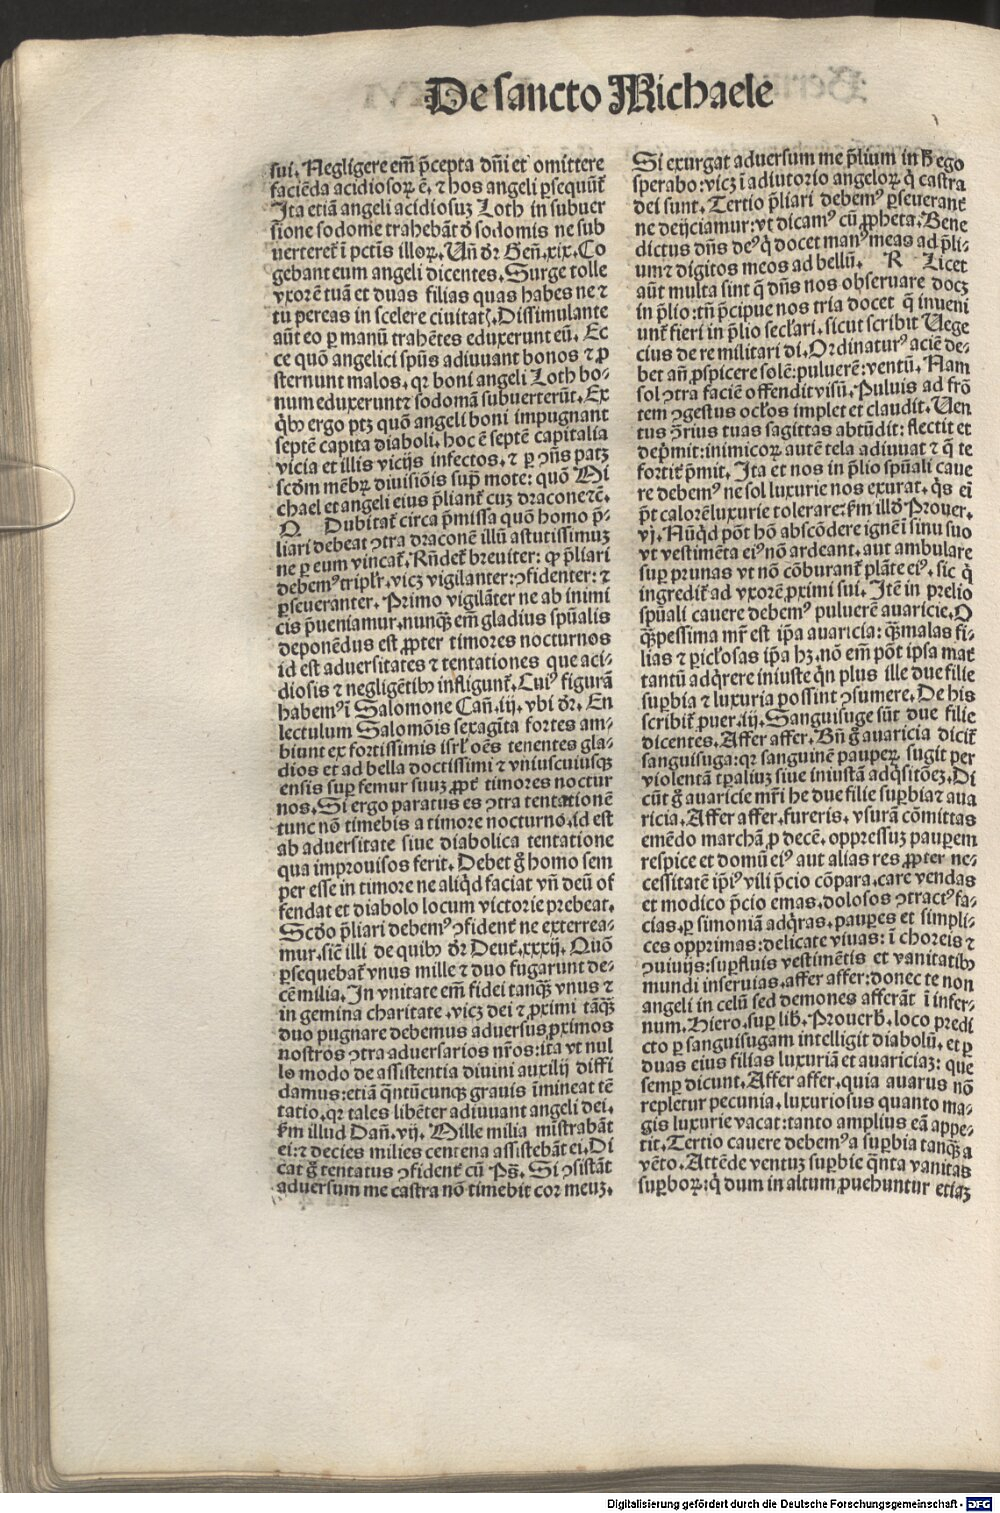 De sancto Michaele
sui. Negligere em̄ p̄cepta dn̄i et omittere
faciēda acidiosoꝝ ē. ⁊ hos angeli ꝑsequūt̄
Ita etiā angeli acidiosuꝫ Loth in subuer
sione sodome trahebāt d̓ sodomis ne sub
uerteret̄ ī pctīs illoꝝ. Un̄ dr̄ Gen̄.xix. Co
gebant eum angeli dicentes. Surge tolle
vxorē tuā et duas filias quas habes ne ⁊
tu pereas in scelere ciuitatꝭ. Dissimulante
aūt eo ꝑ manū trahētes eduxerunt eū. Ec
ce quō angelici spūs adiuuant bonos ⁊ ꝓ
sternunt malos. qꝛ boni angeli Loth bo⸗
num eduxerunt⁊ sodomā subuerterūt. Ex
q̄bꝰ ergo ptꝫ quō angeli boni impugnant
septē capita diaboli. hoc ē septē capitalia
vicia et illis vicijs infectos. ⁊ ꝑ ꝯn̄s patꝫ
scd̓m mēbꝝ diuisiōis supͣ mote: quō Mi
chael et angeli eius p̄liant̄ cuꝫ dracone⁊c̄.
Q Dubitat̄ circa p̄missa quō homo p̄⸗
liari debeat ꝯtra draconē illū astutissimuꝫ
ne ꝑ eum vincat̄. Rn̄det̄ breuiter: ꝙ p̄liari
debemꝰ triplr̄. vicꝫ vigilanter: ꝯfidenter: ⁊
ꝑseueranter. Primo vigilāter ne ab inimi
cis p̄ueniamur. nunqꝫ em̄ gladius spūalis
deponēdus est ꝓpter timores nocturnos
id est aduersitates ⁊ tentationes que aci⸗
diosis ⁊ negligētibꝰ infligunt̄. Cuiꝰ figurā
habemꝰ ī Salomone Can̄.iij. vbi dr̄. En
lectulum Salomōis sexagīta fortes am⸗
biunt ex fortissimis isrl̄ oēs tenentes gla⸗
dios et ad bella doctissimi ⁊ vniuscuiusqꝫ
ensis super femur suuꝫ ꝓpt̄ timores noctur
nos. Si ergo paratus es ꝯtra tentationē
tunc nō timebis a timore nocturno. id est
ab aduersitate siue diabolica tentatione
qua improuisos ferit. Debet g̊ homo sem
per esse in timore ne aliqd̓ faciat vn̄ deū of
fendat et diabolo locum victorie prebeat.
Scd̓o p̄liari debemꝰ ꝯfident̄ ne exterrea⸗
mur. sic̄ illi de quibꝰ dr̄ Deut̄.xxxij. Quō
ꝑsequebat̄ vnus mille ⁊ duo fugarunt de⸗
cē milia. In vnitate em̄ fidei tanqꝫ vnus ⁊
in gemina charitate. vicꝫ dei ⁊ ꝓximi tāqꝫ
duo pugnare debemus aduersus ꝓximos
nostros ꝯtra aduersarios nr̄os: ita vt nul
lo modo de assistentia diuini auxilij diffi
damus: etiā q̄ntūcunqꝫ grauis īmineat tē
tatio. qꝛ tales libēter adiuuant angeli dei.
ẜm illud Dan̄.vij. Mille milia mīstrabāt
ei: ⁊ decies milies centena assistebāt ei. Di
cat g̊ tentatus ꝯfident̄ cū Ps̄. Si ꝯsistāt
aduersum me castra nō timebit cor meuꝫ.
Si exurgat aduersum me p̄lium in h̊ ego
sperabo: vicꝫ ī adiutorio angeloꝝ q̄ castra
dei sunt. Tertio p̄liari debemꝰ ꝑseuerant̄
ne deijciamur: vt dicamꝰ cū ꝓpheta. Bene
dictus dn̄s deꝰ q̄ docet manꝰ meas ad p̄li⸗
um⁊ digitos meos ad bellū. R Licet
aūt multa sint q̄ dn̄s nos obseruare docꝫ
in p̄lio: tn̄ p̄cipue nos tria docet q̄ inueni
unt̄ fieri in p̄lio secl̄ari. sicut scribit Uege
cius de re militari di. Ordinaturꝰ aciē de⸗
bet an̄ ꝓspicere solē: puluerē: ventū. Nam
sol ꝯtra faciē offendit visū. Puluis ad frō
tem ꝯgestus ocl̓os implet et claudit. Uen
tus ꝯ̄rius tuas sagittas abtūdit: flectit et
dep̄mit: inimicoꝝ autē tela adiuuat ⁊ q̄ te
fortit̄ p̄mit. Ita et nos in p̄lio spūali caue
re debemꝰ ne sol luxurie nos exurat. q̄s ei̅
p̄t calorē luxurie tolerare: ẜm illd̓ Prouer.
vj. Nūqd̓ pōt hō abscōdere ignē ī sinu suo
vt vestimēta eiꝰ nō ardeant. aut ambulare
suꝑ prunas vt nō cōburant̄ plāte eiꝰ. sic q̄
ingredit̄ ad vxorē ꝓximi sui. Itē in prelio
spūali cauere debemꝰ puluerē auaricie. O
qꝫpessima mr̄ est ip̄a auaricia: qꝫmalas fi⸗
lias ⁊ ꝑicl̓osas ip̄a hꝫ. nō em̄ pōt ipsa mat̄
tantū adq̄rere iniuste qn̄ plus ille due filie
suꝑbia ⁊ luxuria possint ꝯsumere. De his
scribit̄ ꝓuer.iij. Sanguisuge sūt due filie
dicentes. Affer affer. Bn̄ g̊ auaricia dicit̄
sanguisuga: qꝛ sanguinē pauperꝝ sugit per
violentā tꝑaliuꝫ siue iniustā adq̄sitōeꝫ. Di
cūt g̊ auaricie mr̄i he due filie suꝑbia⁊ aua
ricia. Affer affer. fureris. vsurā cōmittas
emēdo marchā ꝓ decē. oppressuꝫ pauꝑem
respice et domū eiꝰ aut alias res ꝓpter ne⸗
cessitatē ip̄iꝰ vili p̄cio cōpara. care vendas
et modico p̄cio emas. dolosos ꝯtractꝰ fa⸗
cias. ꝑ simoniā adq̄ras. pauꝑes et simpli⸗
ces opprimas: delicate viuas: ī choreis ⁊
ꝯuiuijs: suꝑfluis vestimētis et vanitatibꝰ
mundi inseruias. affer affer: donec te non
angeli in celū sed demones afferāt ī infer⸗
num. Hiero. suꝑ lib. Prouerb̓. loco predi
cto ꝑ sanguisugam intelligit diabolū. et ꝑ
duas eius filias luxuriā et auariciaꝫ: que
semꝑ dicunt. Affer affer. quia auarus nō
repletur pecunia. luxuriosus quanto ma⸗
gis luxurie vacat: tanto amplius eā appe⸗
tit. Tertio cauere debemꝰa suꝑbia tanqꝫ a
vēto. Attēde ventuꝫ suꝑbie q̄nta vanitas
suꝑboꝝ: q̄ dum in altum ꝓuehuntur etiaꝫ
Digitalisierung gefördert durch die Deutsche Forschungsgemeinschaft - DFG